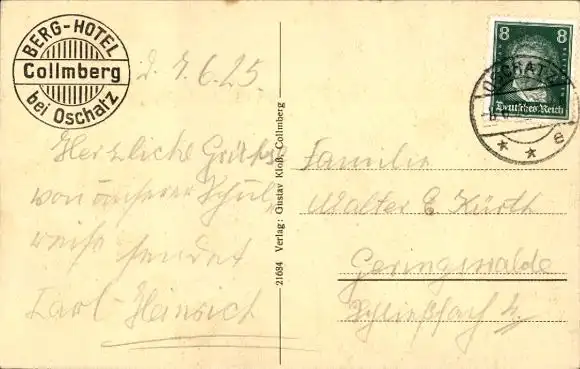 BERG-HOTEL
Collmberg
bei Oschatz
d. 7.6.25.
Herzliche Grüße
von unserer Schul
reise sendet
Karl-Heinrich
21684 Verlag: Gustav Kloß, Collmberg
8 8
Deutsches Reich
OSCHATZ
* * e
Familie
Walter E. Kürth
Geringswalde
Schließfach